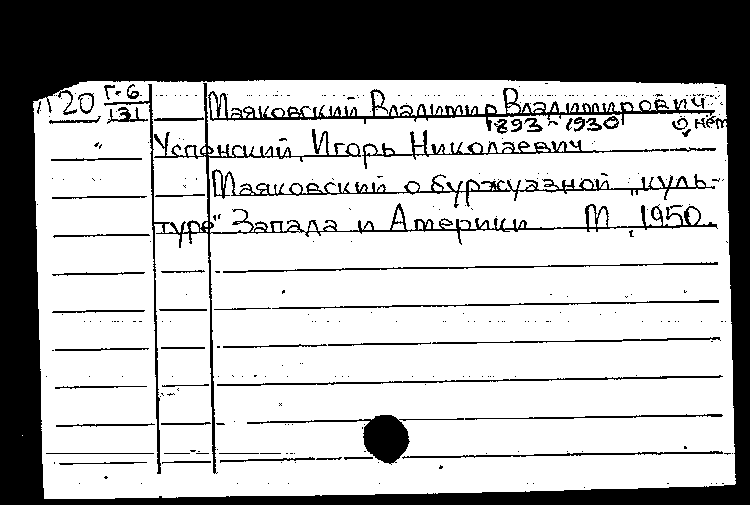 Л 20 Г-6/131 Маяковский, Владимир Владимирович
1893-1930 о нём
" Успенский, Игорь Николаевич
Маяковский о буржуазной „куль-
туре" Запада и Америки М, 1950.